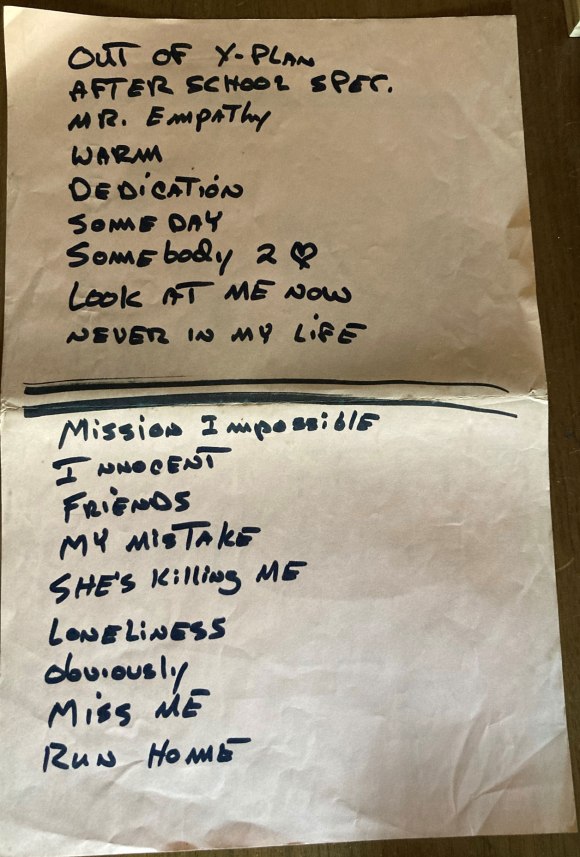 OUT OF Y-PLAN
AFTER SCHOOL SPEC.
MR. EMPATHY
WARM
DEDICATION
SOMEDAY
SOMEBODY 2 ♡
LOOK AT ME NOW
NEVER IN MY LIFE
MISSION IMPOSSIBLE
INNOCENT
FRIENDS
MY MISTAKE
SHE'S KILLING ME
LONELINESS
OBVIOUSLY
MISS ME
RUN HOME